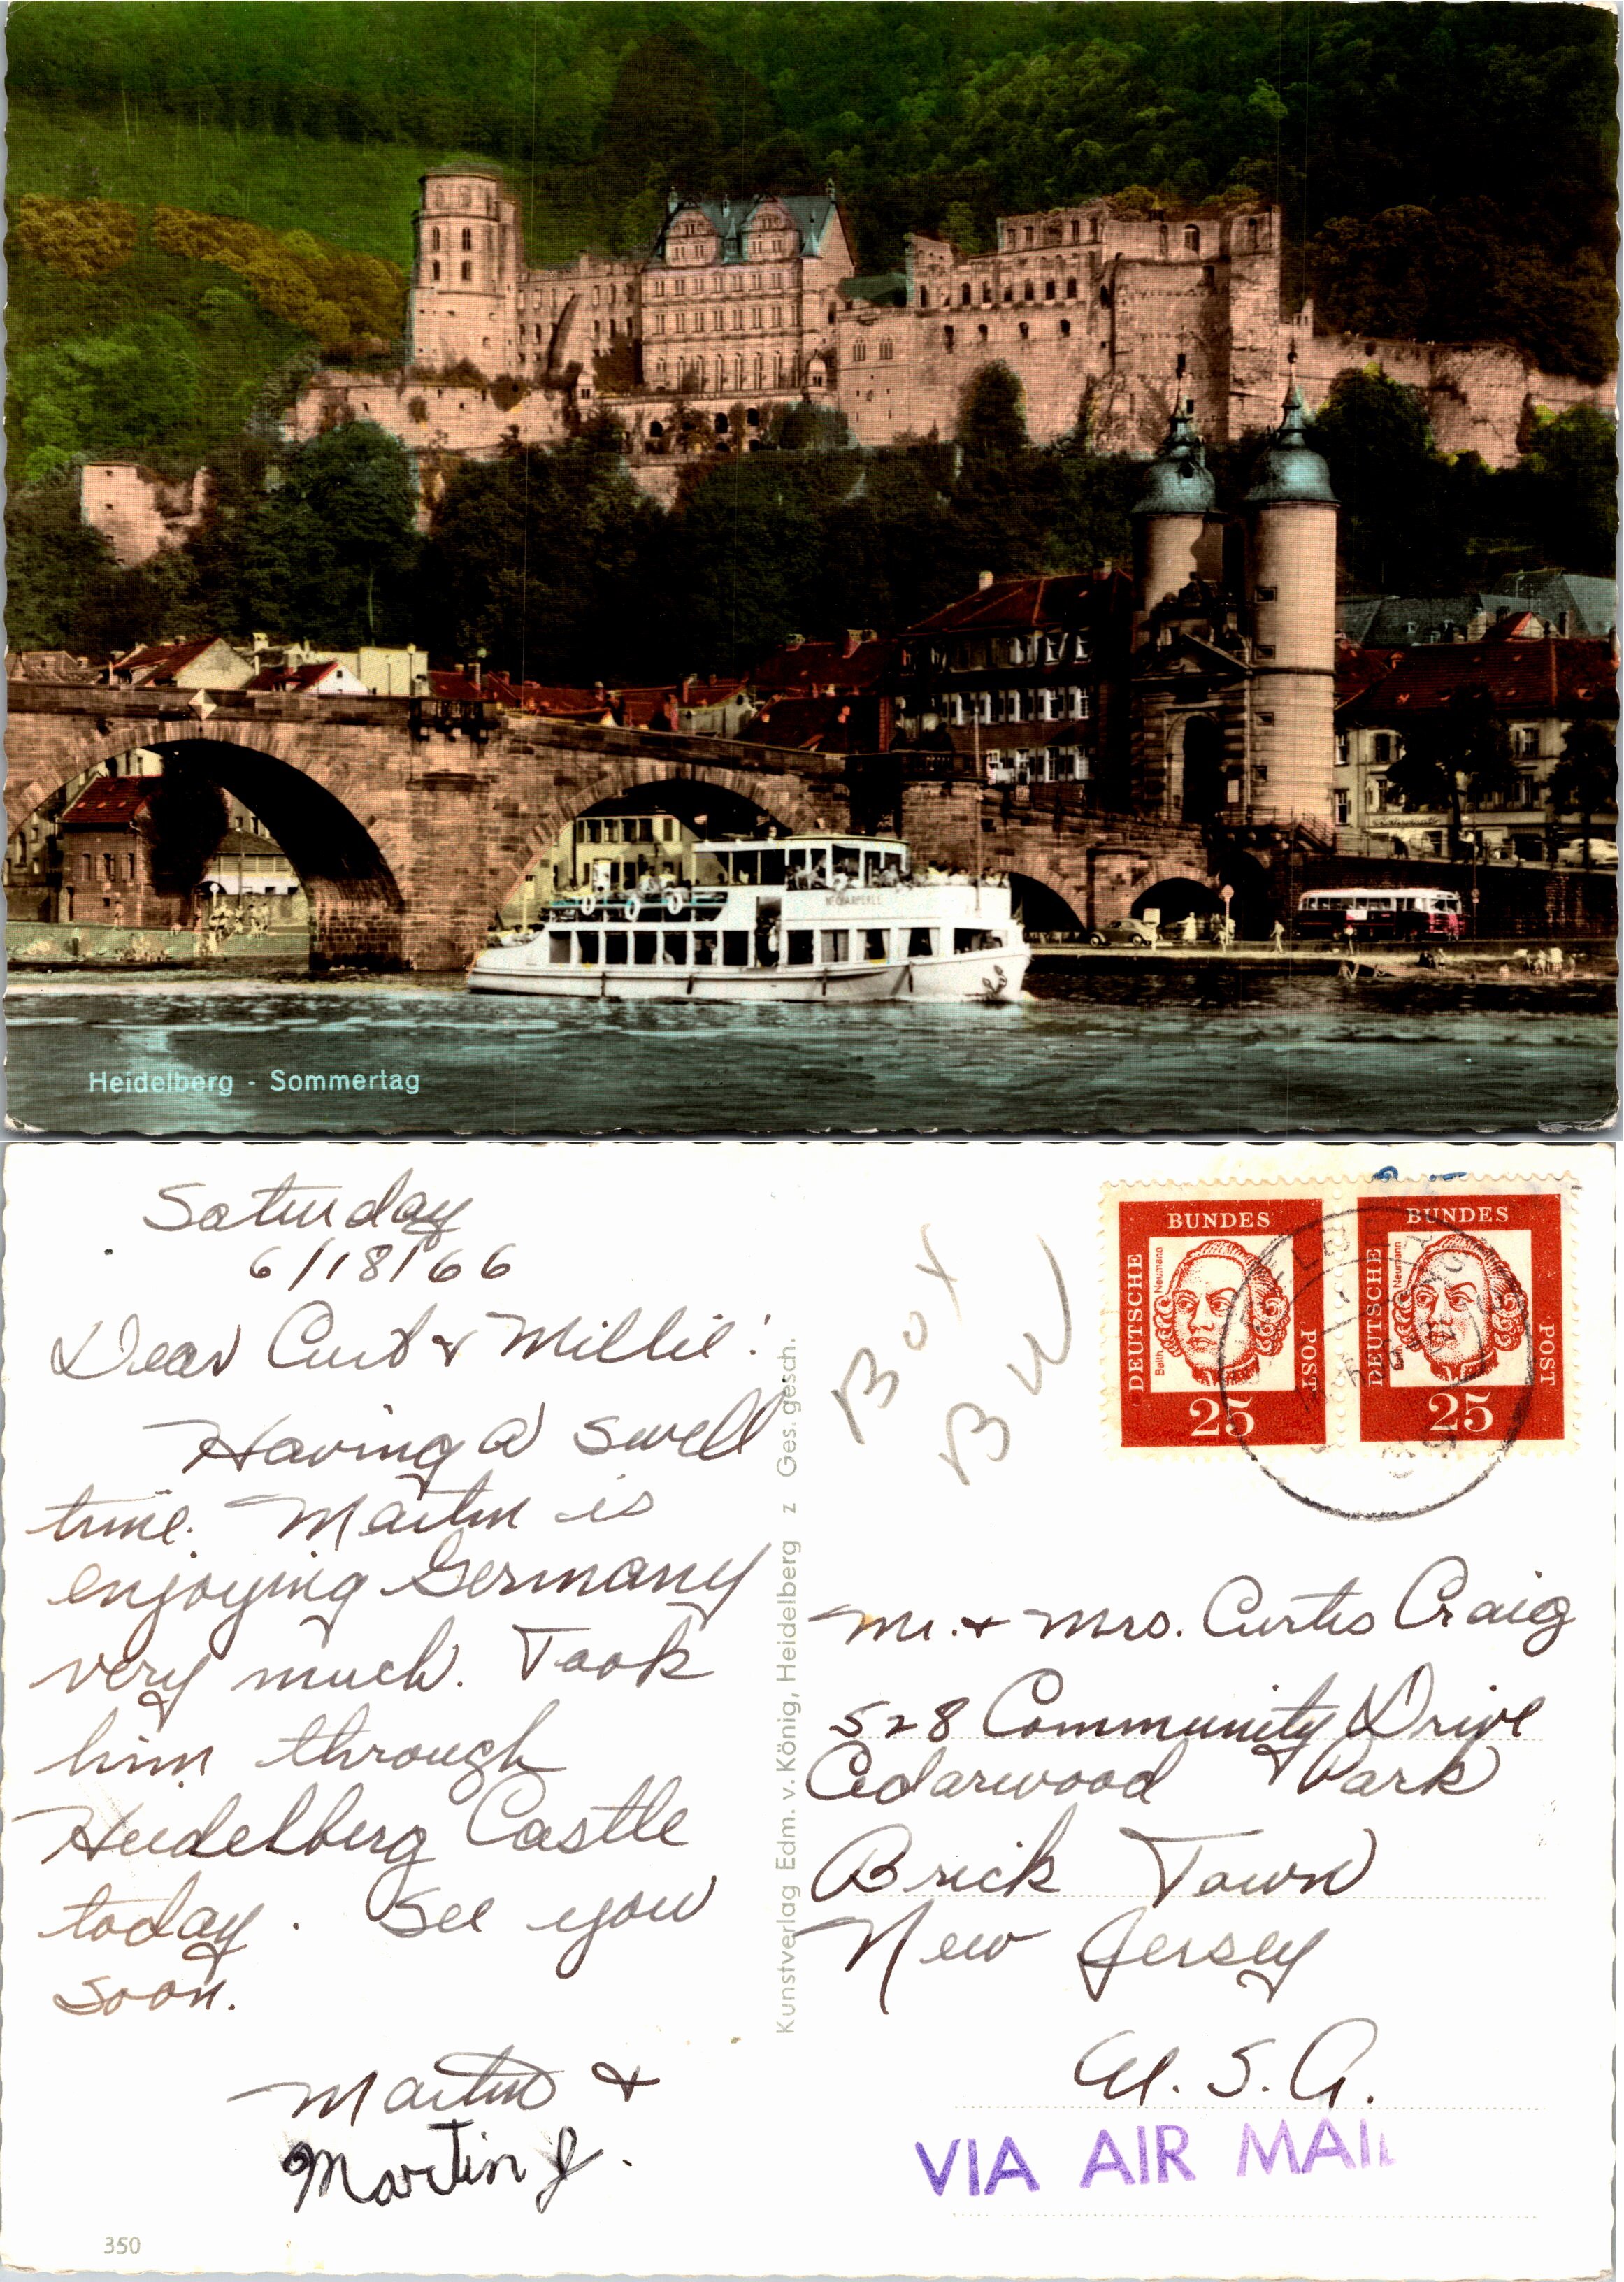 NECKARPERLE
Heidelberg - Sommertag
Saturday
6/18/66
Dear Curt & Millie:
Having a swell
time. Martin is
enjoying Germany
very much. Took
him through
Heidelberg Castle
today. See you
soon.
Martin &
Martin J.
350
Kunstverlag Edm. v. König, Heidelberg z Ges. gesch.
Box
BW
BUNDES
DEUTSCHE
Balth. Neumann
POST
25
BUNDES
DEUTSCHE
Balth. Neumann
POST
25
Mr. & Mrs. Curtis Craig
528 Community Drive
Cedarwood Park
Brick Town
New Jersey
U.S.A.
VIA AIR MAIL